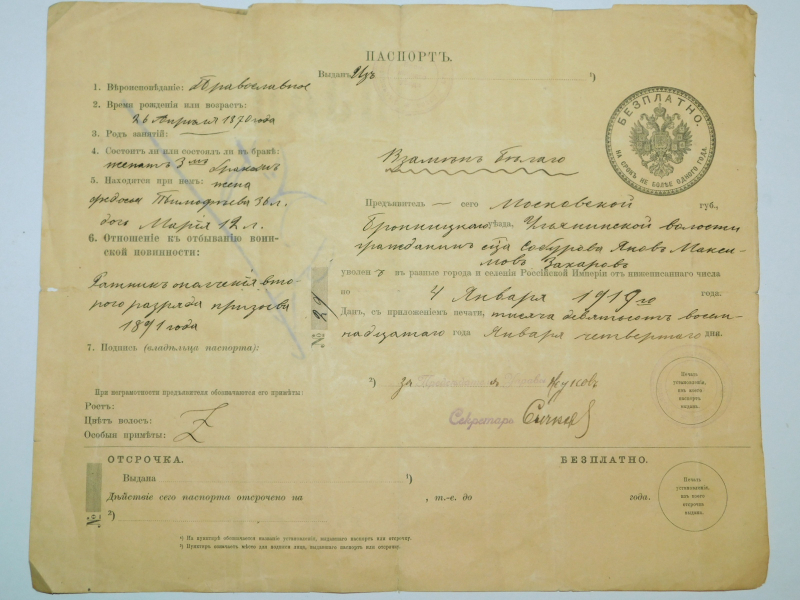 ПАСПОРТЪ.
Выданъ ¹)
1. Вѣроисповѣданіе: Православное
2. Время рожденія или возрастъ:
26 Апрѣля 1870 года
3. Родъ занятій:
4. Состоитъ ли или состоялъ ли въ бракѣ:
женатъ 3мъ бракомъ
5. Находятся при немъ: жена
Федосья Тимофеева 36 л.
Марія 12 л.
6. Отношеніе къ отбыванію воин-
ской повинности:
Ратникъ ополченія вто-
рого разряда призыва
1891 года
7. Подпись (владѣльца паспорта):
При неграмотности предъявителя обозначаются его примѣты:
Ростъ:
Цвѣтъ волосъ:
Особыя примѣты:
БЕЗПЛАТНО.
НА СРОКЪ НЕ БОЛѢЕ ОДНОГО ГОДА
Взамѣнъ
Предъявитель сего Московской губ.,
Бронницкаго уѣзда, Ульянинской волости
гражданинъ Яковъ Макси-
мовъ Захаровъ
уволенъ въ разные города и селенія Россійской Имперіи отъ нижеписаннаго числа
по 4 Января 1919 го года.
Данъ, съ приложеніемъ печати, тысяча девятьсотъ восем-
надцатаго года Января четвертаго дня.
№
²) за Жуковъ
Секретарь
Печать
установленія,
изъ коего
паспортъ
выданъ.
ОТСРОЧКА. БЕЗПЛАТНО.
Выдана ¹)
Дѣйствіе сего паспорта отсрочено на , т.-е. до года.
№ ²)
Печать
установленія,
изъ коего
отсрочка
выдана.
¹) На пунктирѣ обозначается названіе установленія, выдавшаго паспортъ или отсрочку.
²) Пунктиръ означаетъ мѣсто для подписи лица, выдавшаго паспортъ или отсрочку.